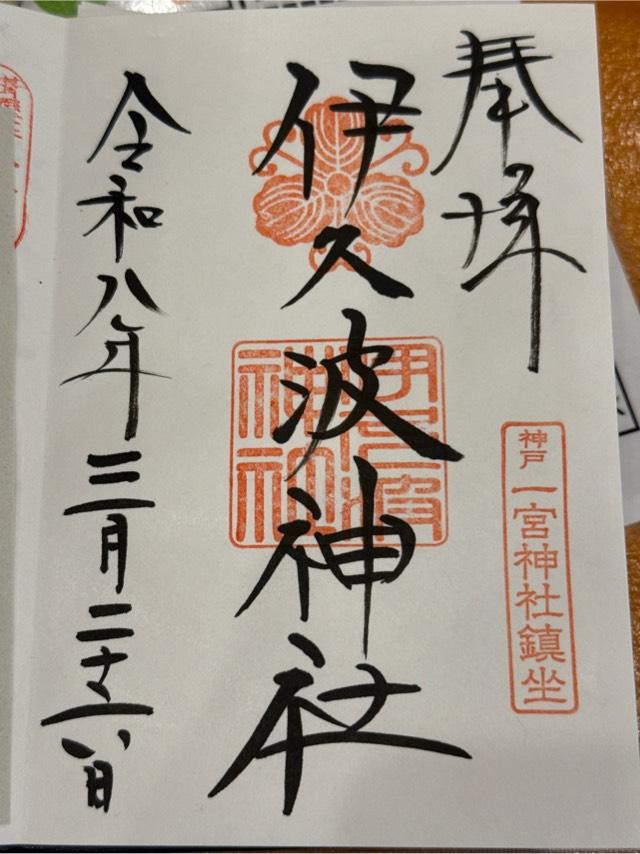 奉拝
神戸 一宮神社鎮坐
伊久波神社
令和八年三月二十六日